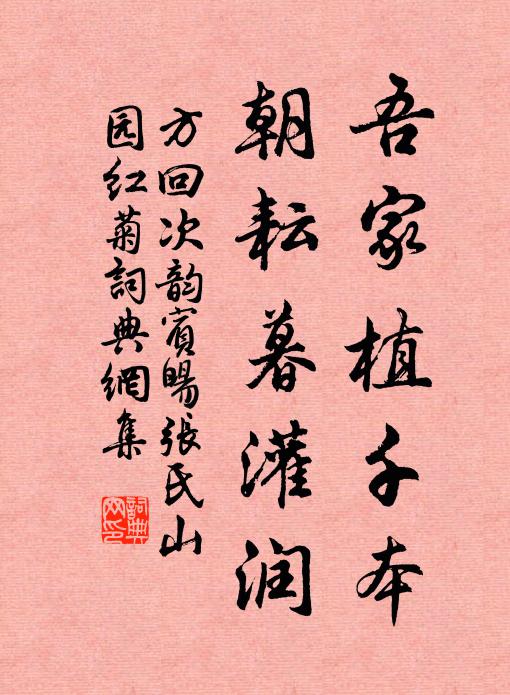 吾家植千本
朝耘暮灌润
方回次韵宾旸張氏山
园红菊詞典網集
詞典
网印